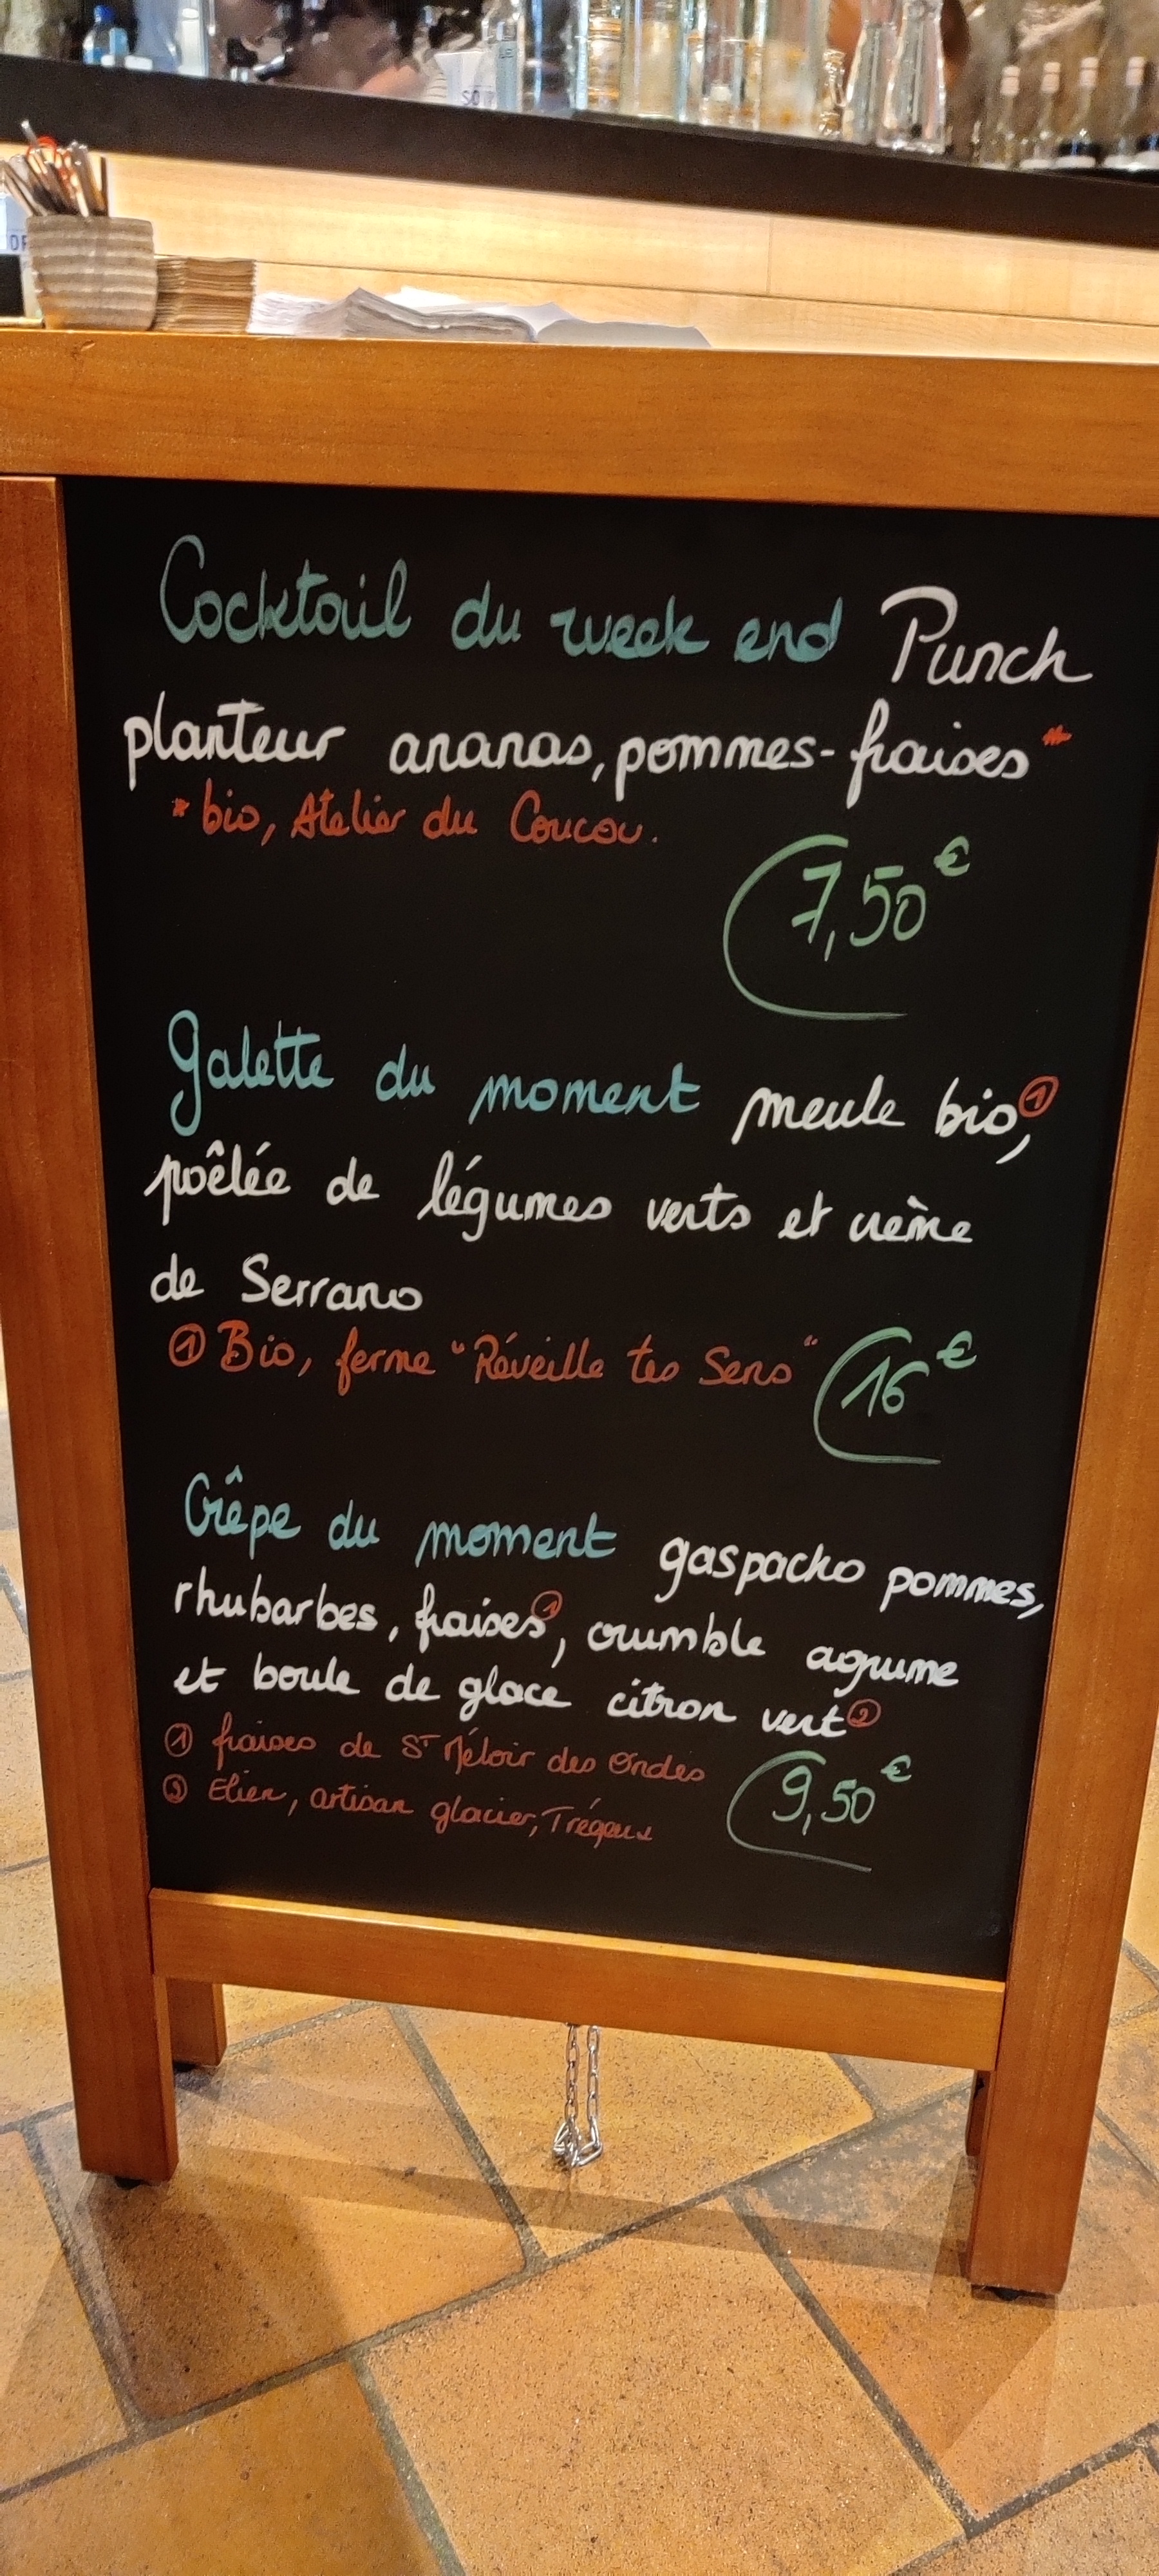 Cocktail du week end Punch
planteur ananas, pommes-fraises*
* bio, Atelier du Coucou.
7,50€
Galette du moment meule bio①,
poêlée de légumes verts et crème
de Serrano
① Bio, ferme "Réveille tes Sens"
16€
Crêpe du moment gaspacho pommes,
rhubarbes, fraises①, crumble agrume
et boule de glace citron vert②
① fraises de St Méloir des Ondes
② Elien, artisan glacier, Trégeux
9,50€